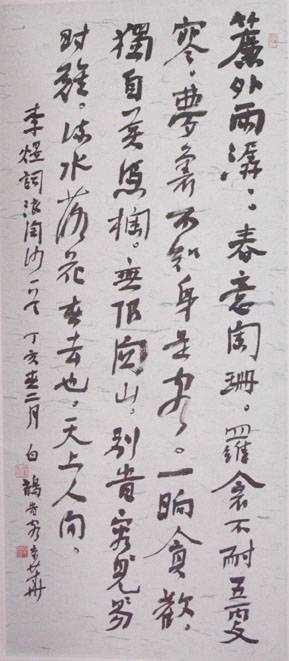 簾外雨潺：春意闌珊。羅衾不耐五更
寒。夢裏不知身是客。一晌貪歡。
獨自莫憑欄。無限關山。別時容易見
時難。流水落花春去也。天上人間。
李煜詞浪淘沙一首 丁亥春二月 白